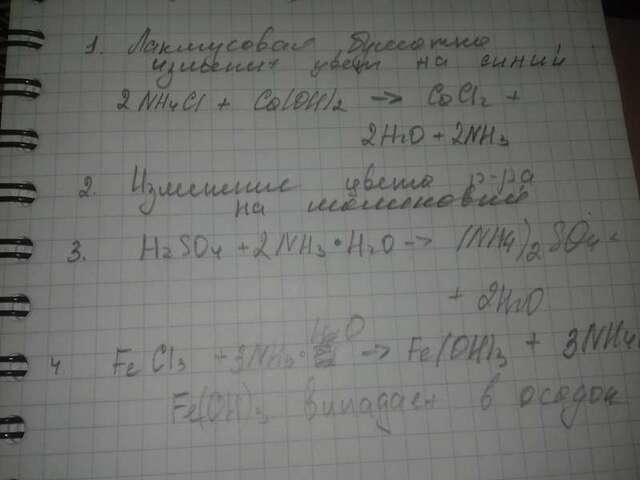 1. Лакмусовая бумажка
изменит цвет на синий
2NH4Cl + Ca(OH)2 → CaCl2 +
2H2O + 2NH3
2. Изменение цвета р-ра
на малиновый
3. H2SO4 + 2NH3•H2O → (NH4)2SO4
+ 2H2O
4 FeCl3 + 3NH3•H2O → Fe(OH)3 + 3NH4
Fe(OH)3 випадает в осадок